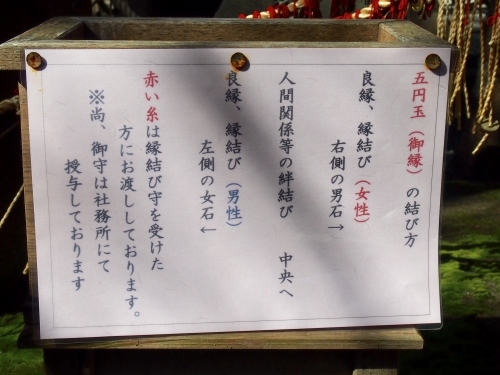 五円玉(御縁)の結び方
良縁、縁結び(女性)
右側の男石→
人間関係等の絆結び 中央へ
良縁、縁結び(男性)
左側の女石←
赤い糸は縁結び守を受けた
方にお渡ししております。
※尚、御守は社務所にて
授与しております